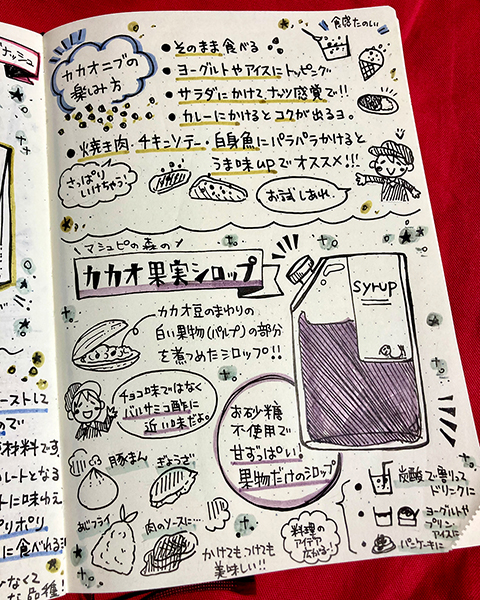 ナッシュ
カカオニブの
楽しみ方
食感たのしい
そのまま食べる
ヨーグルトやアイスにトッピング
サラダにかけて、ナッツ感覚で!!
カレーにかけるとコクが出るヨ。
焼き肉・チキンソテー・白身魚にパラパラかけると
うま味upでオススメ!!!
さっぱり
いけちゃう!
お試しあれ。
マシュピの森の
カカオ果実シロップ
カカオ豆のまわりの
白い果物(パルプ)の部分
を煮つめたシロップ!!
syrup
チョコ味ではなく
バルサミコ酢に
近い味だよ。
お砂糖
不使用で
甘ずっぱい!
果物だけのシロップ
豚まん
ぎょうざ
肉のソースに…
かけてもつけても
美味しい!!
料理の
アイデア
広がる!
炭酸で割って
ドリンクに
ヨーグルトや
プリン
アイスに
パンケーキに
ーストして
ので
材料です
レートとなる
トに味わえ
ポリポリ
に食べれる!!